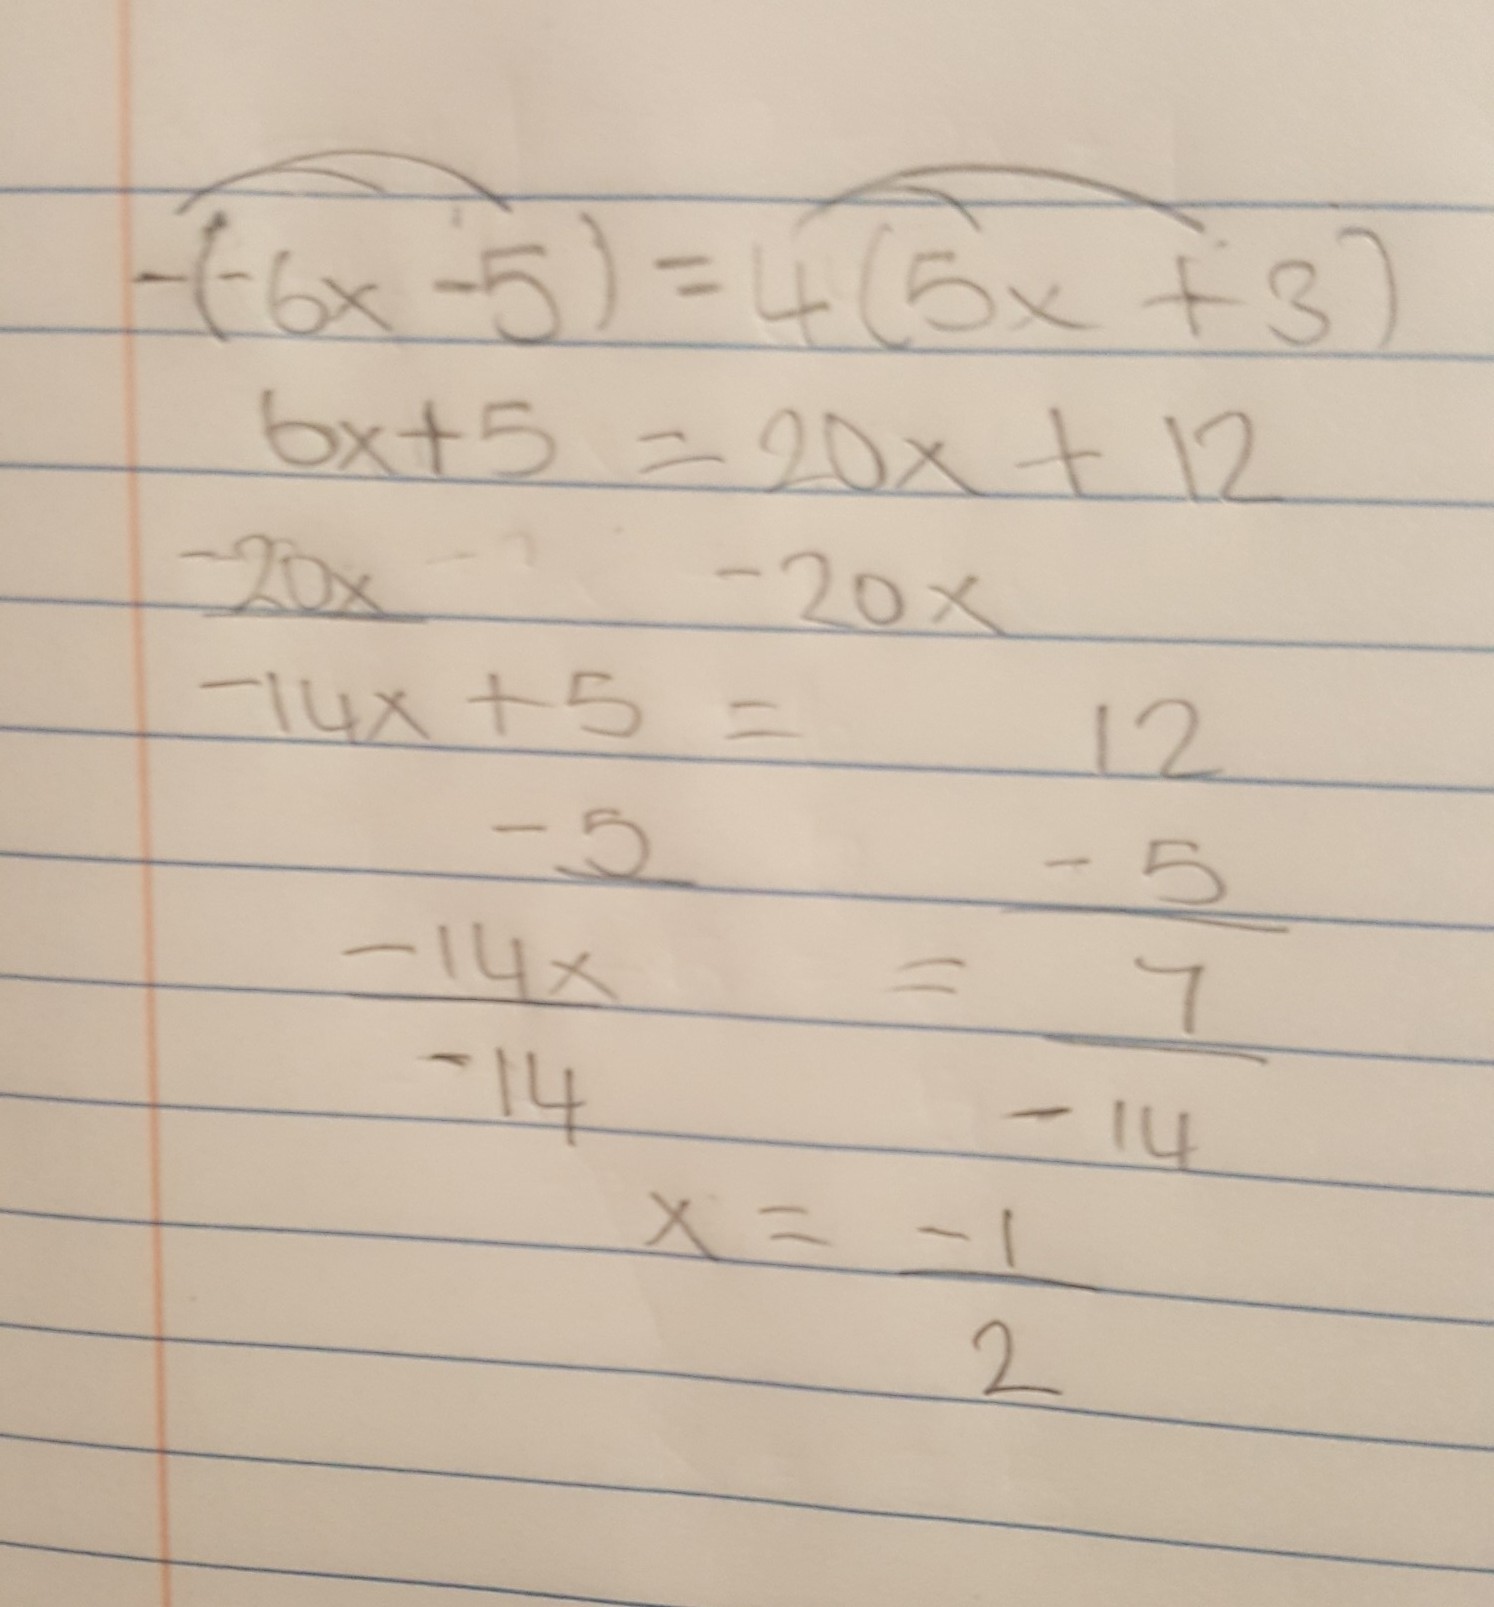 -(-6x -5) = 4(5x + 3)
6x+5 = 20x + 12
-20x -20x
-14x +5 = 12
-5 -5
-14x = 7
-14 -14
x = -1
2